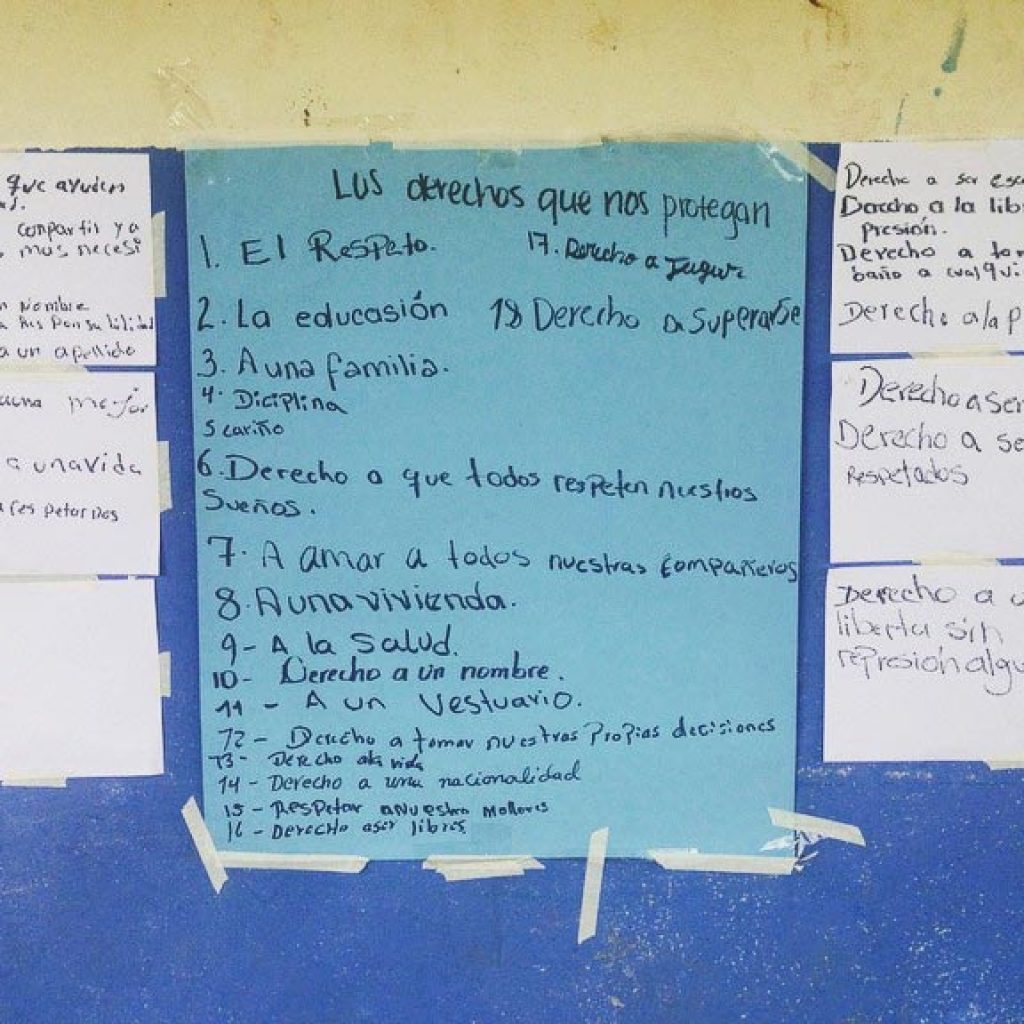 que ayuden
compartir y a
mas necesi
Nombre
a un apellido
mejor
a una vida
Los derechos que nos protegan
1. El Respeto.
17. Derecho a Jugar
2. La educasión
18 Derecho a Superarse
3. A una familia.
4. Diciplina
5 cariño
6. Derecho a que todos respeten nuestros
Sueños.
7. A amar a todos nuestras compañeros
8. A una vivienda.
9- A la Salud.
10- Derecho a un nombre.
11 - A un Vestuario.
12 - Derecho a tomar nuestras Propias decisiones
13- Derecho ala vida
14 - Derecho a una nacionalidad
15 - Respetar a Nuestro Mallores
16 - Derecho aser libres
Derecho a ser esc
Derecho a la lib
presión.
Derecho a tom
baño a cualqui
Derecho a la p
Derecho a ser
Derecho a se
Respetados
Derecho a u
liberta sin
represión algu